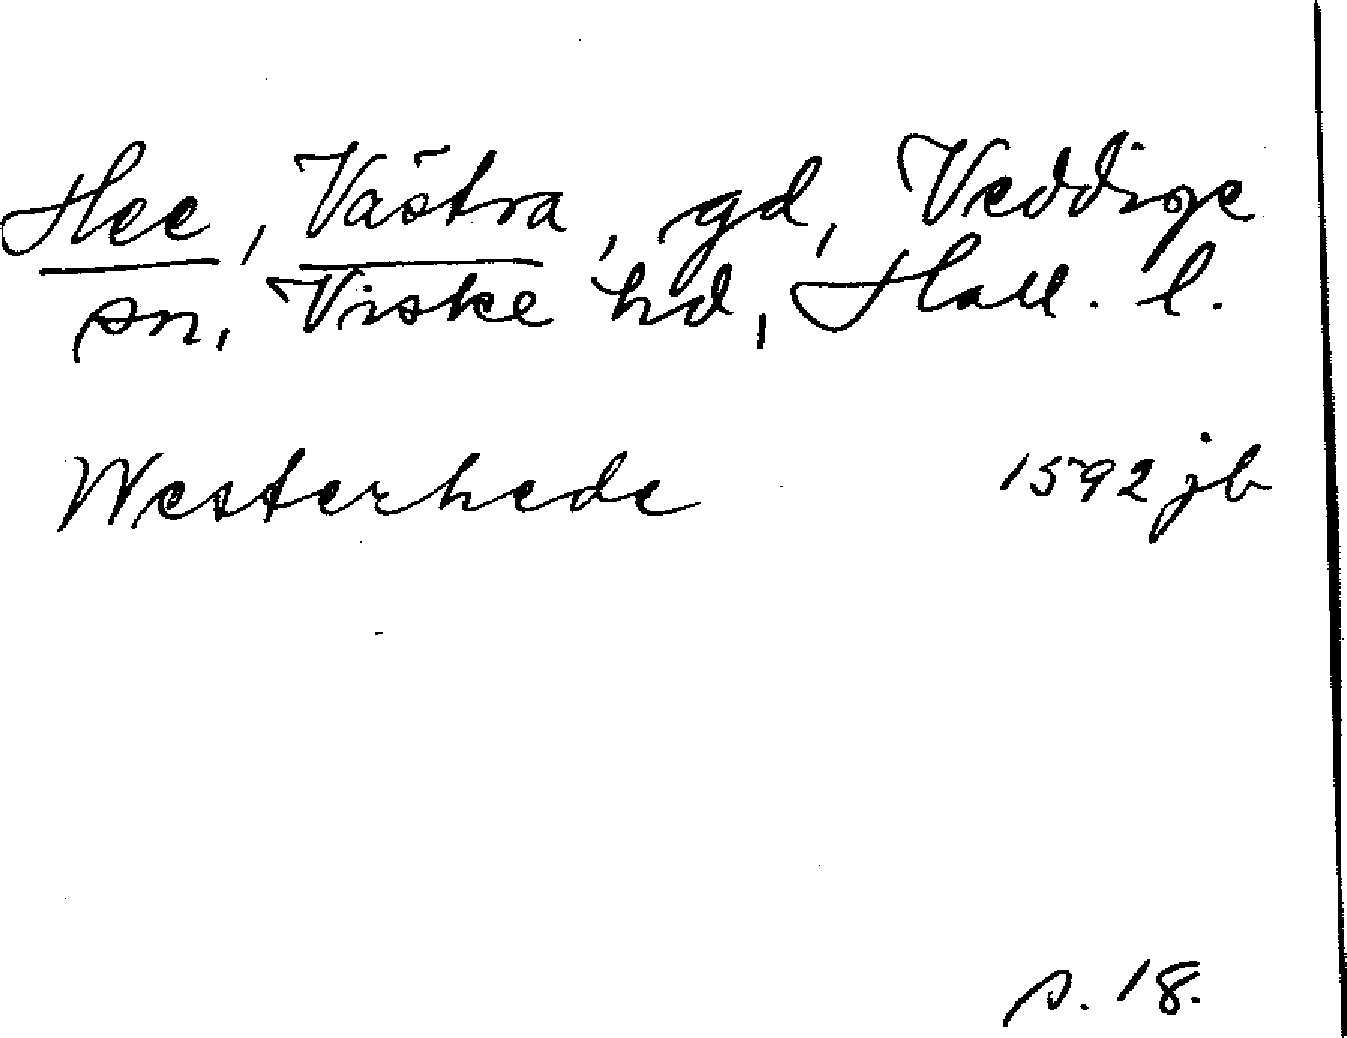 Hee, Västra, gd, Veddige
sn, Viske hd, Hall. l.
Westerhede 1592 jb
s. 18.